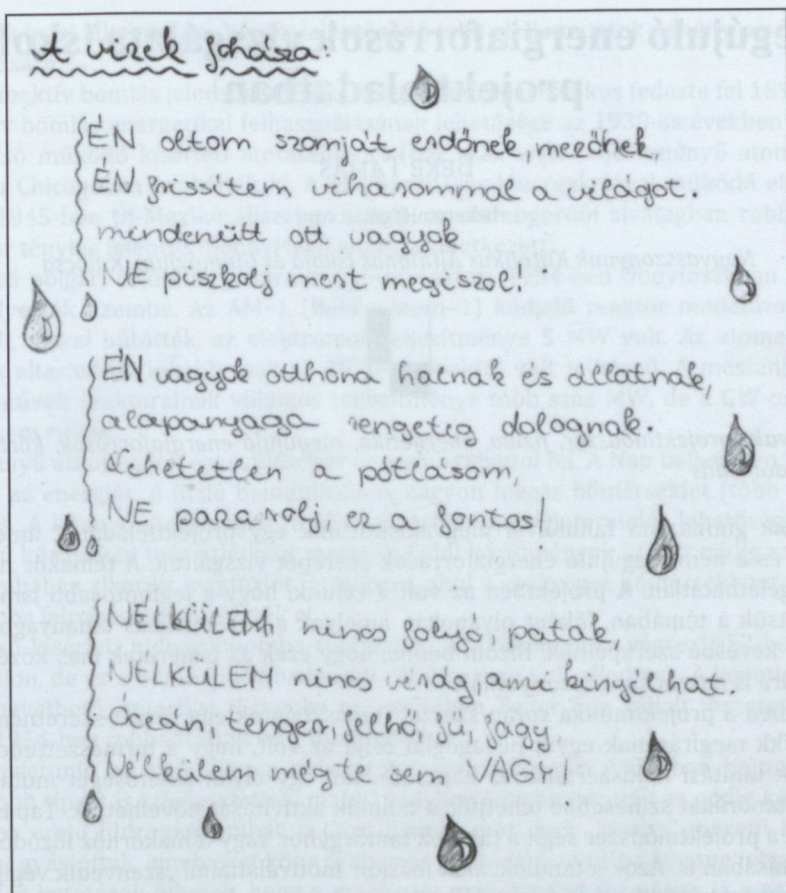 A vizek fohásza.
ÉN oltom szomját erdőnek, mezőnek,
ÉN frissítem viharommal a világot.
mindenütt ott vagyok
NE piszkolj, mert megiszol!
ÉN vagyok otthona halnak és állatnak,
alapanyaga rengeteg dolognak.
Lehetetlen a pótlásom,
NE pazarolj, ez a fontos!
NÉLKÜLEM nincs folyó, patak,
NÉLKÜLEM nincs virág, ami kinyílhat.
Óceán, tenger, felhő, jég, fagy,
Nélkülem még te sem VAGY!